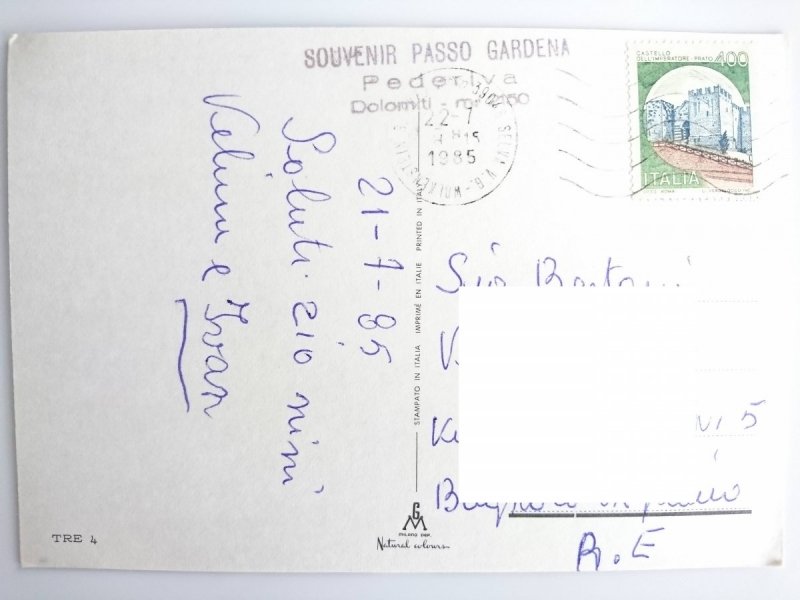 SOUVENIR PASSO GARDENA
Pederiva
Dolomiti - m. 2150
22-7
1985
CASTELLO
DELL'IMPERATORE - PRATO
400
ITALIA
21-7-85
Saluti zio nini
Velima e Ivan
STAMPATO IN ITALIA IMPRIMÉ EN ITALIE PRINTED IN ITALY
Sig
5
R.E
TRE 4
GM
MILANO DEP.
Natural colours